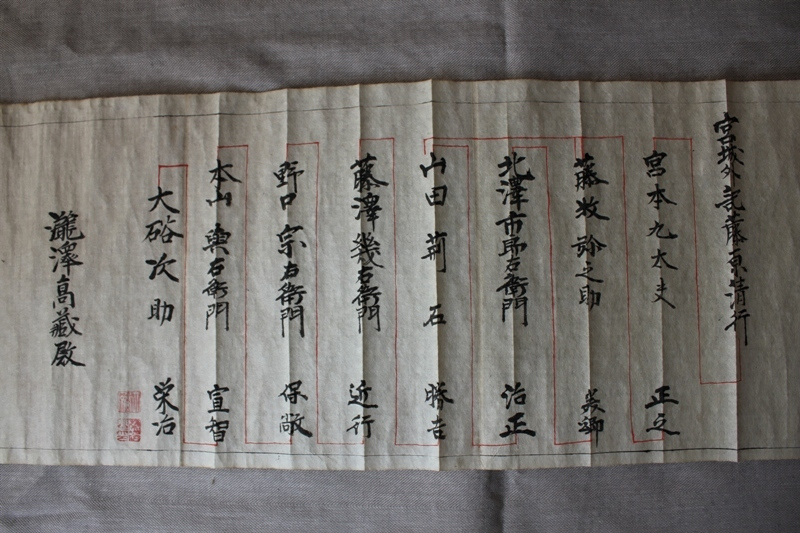 宮城外記藤原清行
宮本九太夫 正之
藤牧弥之助 義卿
北澤市郎右衛門 治正
山田荊石 勝吉
藤澤幾右衛門 近行
野口宗右衛門 保敞
本山與右衛門 宣智
大硲次助 栄治
瀧澤高蔵殿